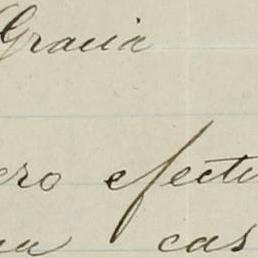 Gracia
ero efectu
na cas